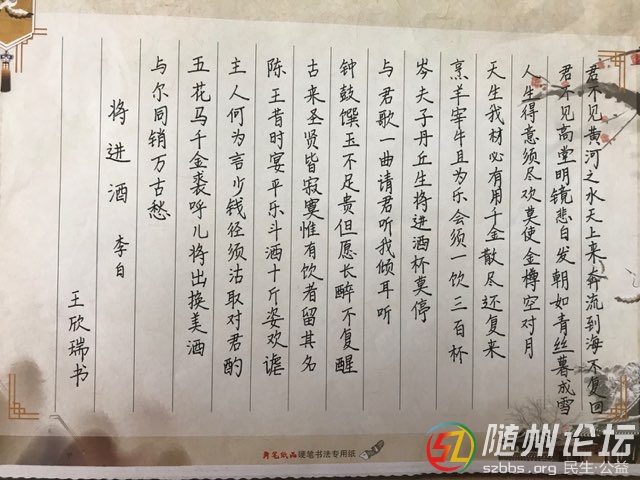 君不见黄河之水天上来奔流到海不复回
君不见高堂明镜悲白发朝如青丝暮成雪
人生得意须尽欢莫使金樽空对月
天生我材必有用千金散尽还复来
烹羊宰牛且为乐会须一饮三百杯
岑夫子丹丘生将进酒杯莫停
与君歌一曲请君听我倾耳听
钟鼓馔玉不足贵但愿长醉不复醒
古来圣贤皆寂寞惟有饮者留其名
陈王昔时宴平乐斗酒十斤姿欢谑
主人何为言少钱径须沽取对君酌
五花马千金裘呼儿将出换美酒
与尔同销万古愁
将进酒 李白
王欣瑞书
硬笔书法专用纸
随州论坛
szbbs.org 民生·公益